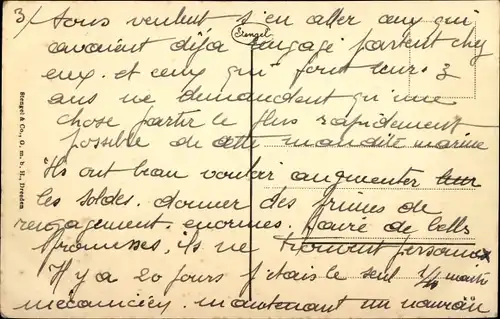 3/ tous veulent s'en aller ceux qui
Stengel
avaient déjà rengagé partent chez
eux. et ceux qui font leur 3
ans ne demandent qu'une
chose partir le plus rapidement
possible de cette maudite marine
Ils ont beau vouloir augmenter leur
les soldes. donner des primes de
rengagement. enormes. faire de belles
promesses, ils ne trouvent personne
Il y a 20 jours j'étais le seul 1/4 maitre
mécanicien. maintenant un nouveau
Stengel & Co., G. m. b. H., Dresden